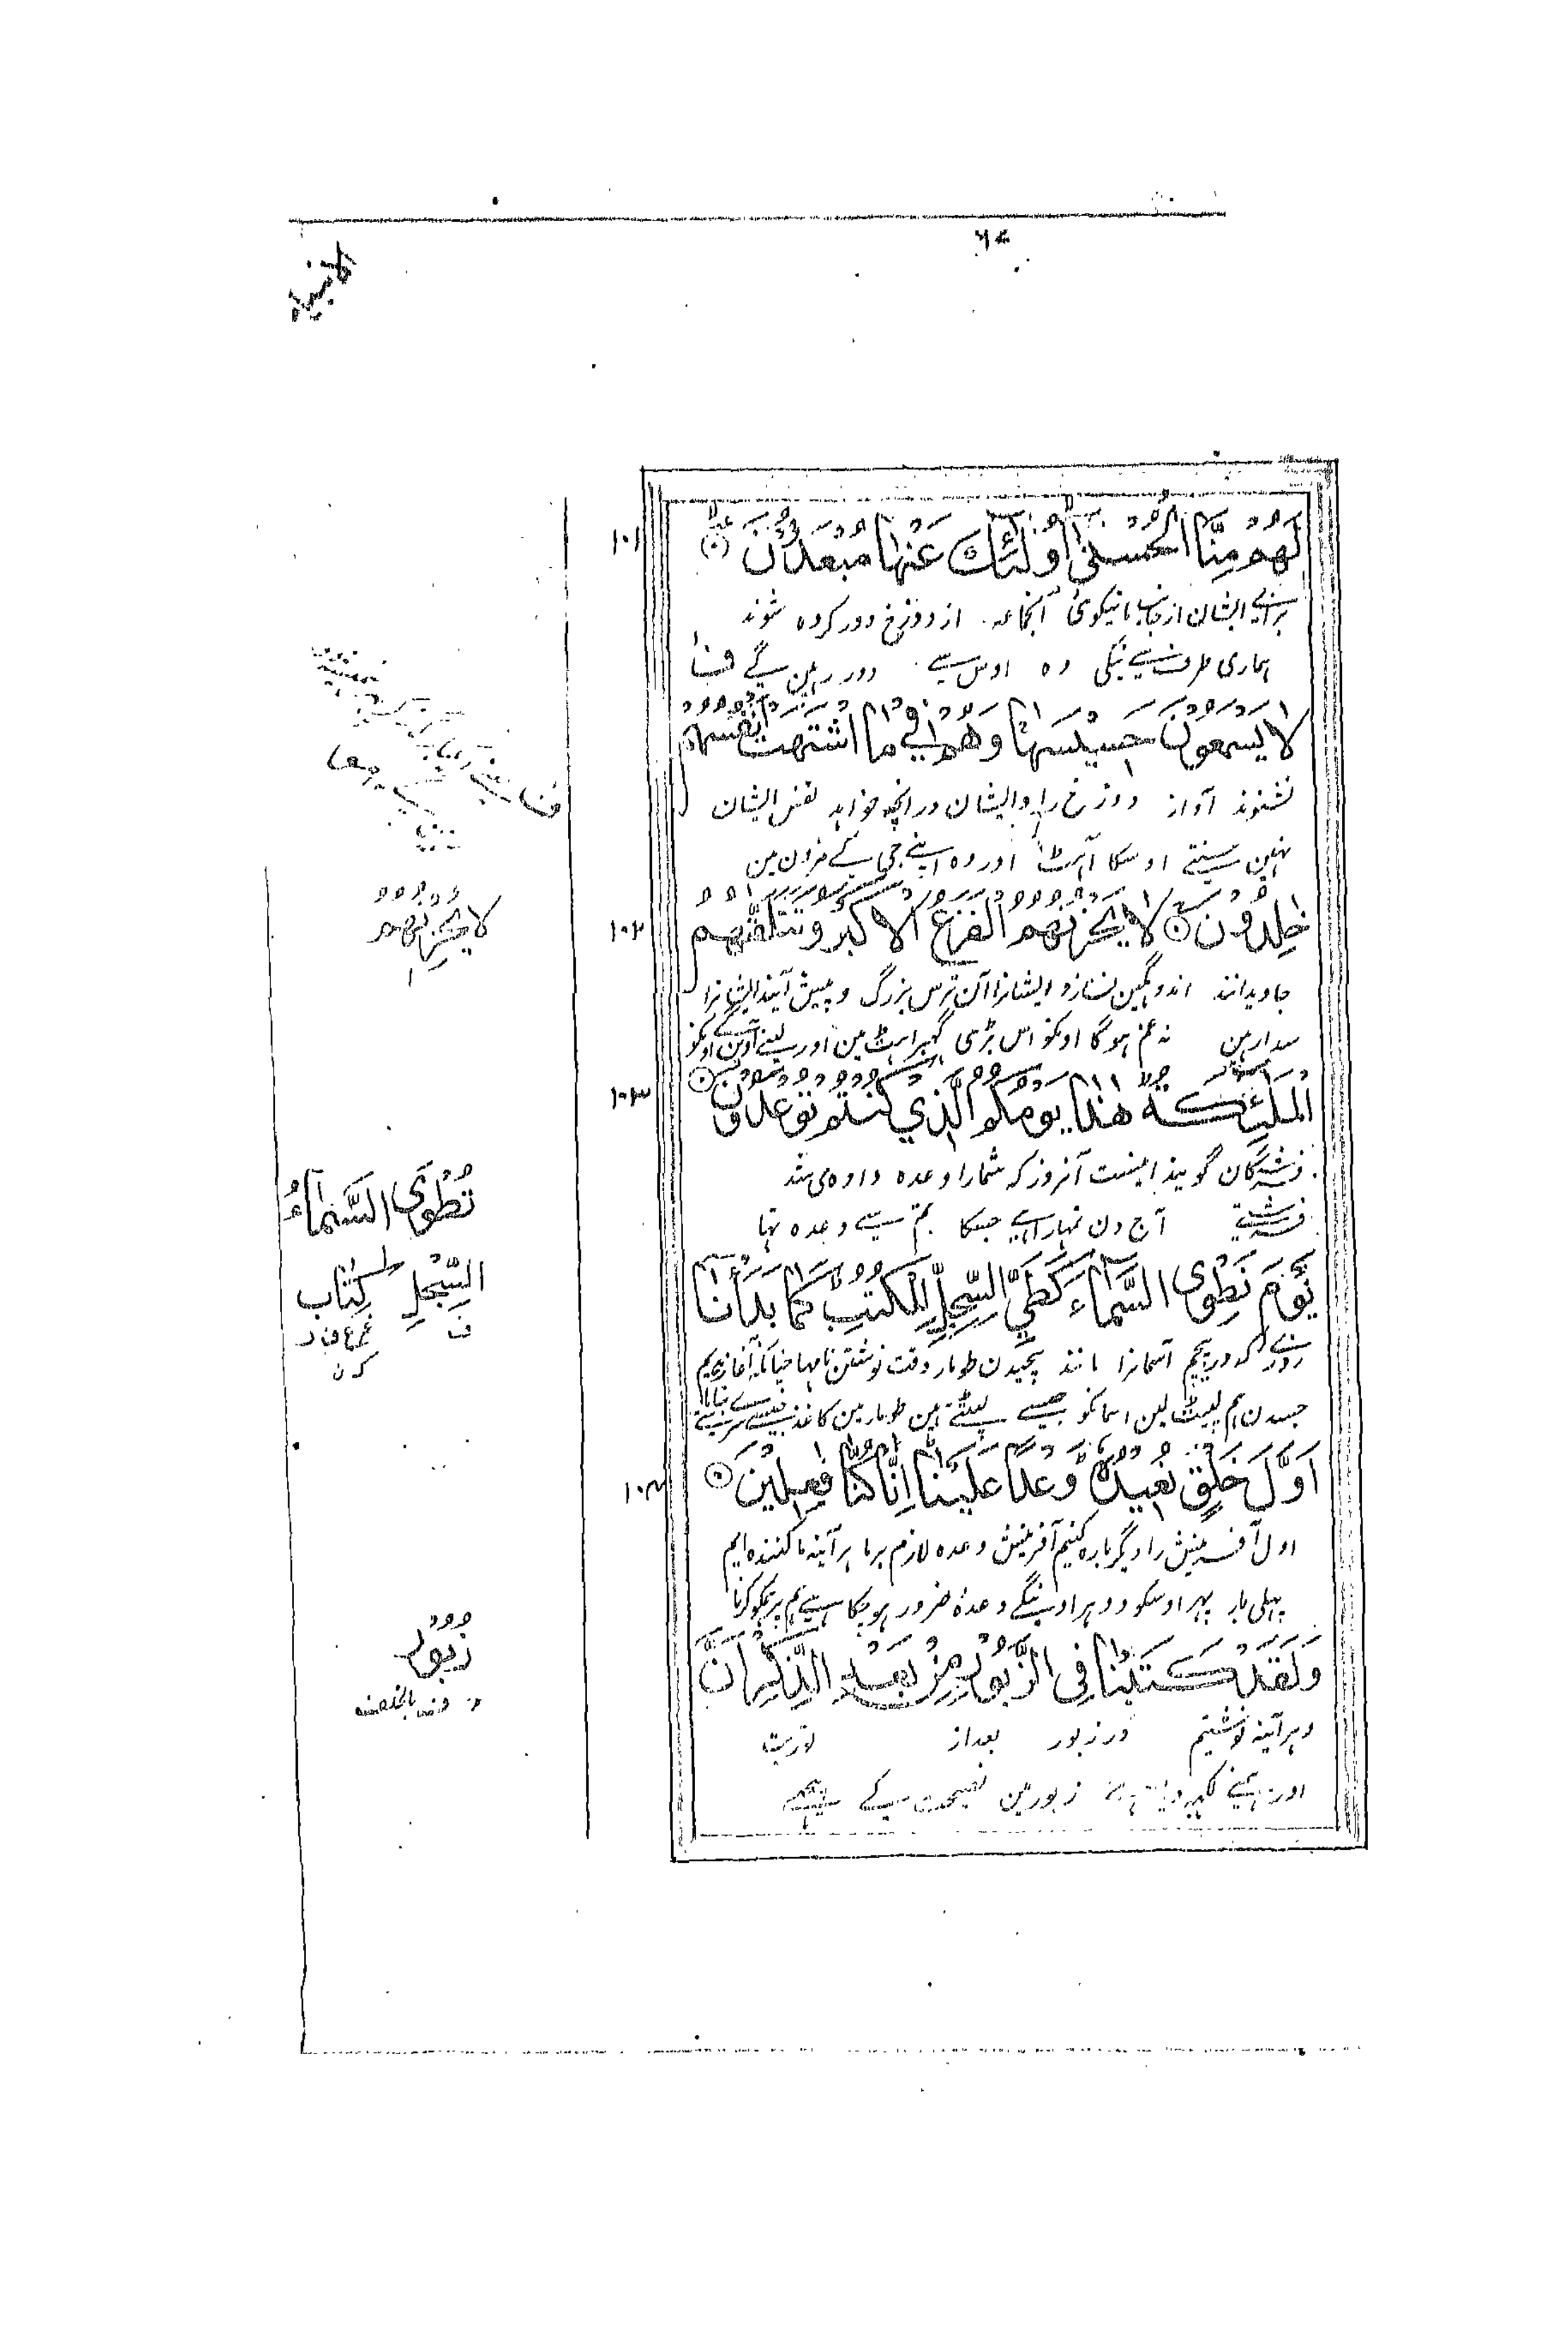 الانبیاء
لَهُمْ مِنَّا الْحُسْنَىٰ أُولَٰئِكَ عَنْهَا مُبْعَدُونَ
۱۰۱
برای ایشان از جانب ما نیکوئی آنجماعہ از دوزخ دور کردہ شوند
ہماری طرف سے نیکی وہ اوس سے دور رہین گے ف
لَا يَسْمَعُونَ حَسِيسَهَا وَهُمْ فِي مَا اشْتَهَتْ أَنْفُسُهُمْ
نشنوند آواز دوزخ را و ایشان در انچہ خواہد نفس ایشان
نہین سنتے اوسکا آہٹ اور وہ اپنے جی کے مزون مین
خٰلِدُونَ لَا يَحْزُنُهُمُ الْفَزَعُ الْأَكْبَرُ وَتَتَلَقّٰهُمُ
۱۰۲
جاویدانند اندوہگین نسازد ایشانرا آن ترس بزرگ و پیش آیند ایشانرا
سدا رہین نہ غم ہوگا اونکو اس بڑی گھبراہٹ مین اور لینے آوین گے اونکو
الْمَلٰئِكَةُ هٰذَا يَوْمُكُمُ الَّذِي كُنْتُمْ تُوعَدُونَ
۱۰۳
فرشتگان گویند اینست آنروز کہ شمارا وعدہ دادہ می شد
فرشتے آج دن تمہارا ہے جسکا تم سے وعدہ تہا
يَوْمَ نَطْوِي السَّمَاءَ كَطَيِّ السِّجِلِّ لِلْكُتُبِ كَمَا بَدَأْنَا
روزے کہ در پیچیم آسمانرا مانند پیچیدن طومار وقت نوشتن نامہا چنانکہ آغاز کردیم
جسدن ہم لپیٹ لین اسمانکو جیسے لپیٹتے ہین طومار مین کاغذ جیسے سرسے بنایا
أَوَّلَ خَلْقٍ نُعِيدُهُ وَعْدًا عَلَيْنَا إِنَّا كُنَّا فٰعِلِينَ
۱۰۴
اول آفرینش را دیگر بارہ کنیم آفرینش وعدہ لازم برما ہر آئینہ ما کنندہ ایم
پہلی بار پہر اوسکو دوہراوینگے وعدہ ضرور ہو چکا ہے ہم پر ہمکو کرنا
وَلَقَدْ كَتَبْنَا فِي الزَّبُورِ مِنْ بَعْدِ الذِّكْرِ أَنَّ
و ہر آئینہ نوشتیم در زبور بعد از توریت
اور ہمنے لکھ دیا ہے زبور مین نصیحت کے پیچھے
لَا يُحْزِنُهُمُ
تُطْوَى السَّمَاءُ
السِّجْلِ كِتَاب
زُبُور